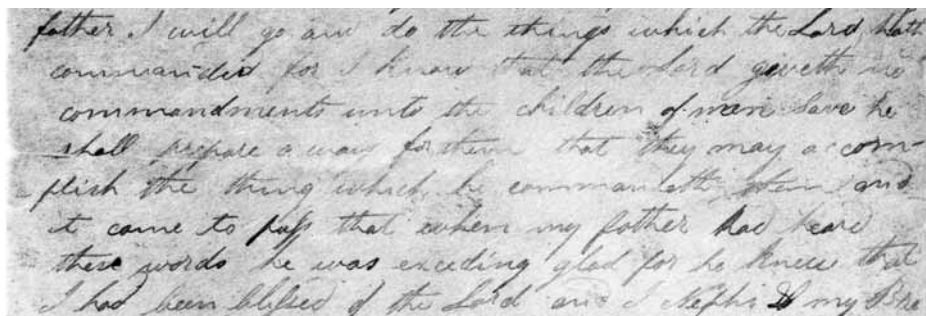 father I will go and do the things which the Lord hath
commanded for I know that the Lord giveth no
commandments unto the children of men save he
shall prepare a way for them that they may accom-
plish the thing which he commandeth them and
it came to pass that when my father had heard
these words he was exceding glad for he knew that
I had been blessed of the Lord and I Nephi & my Bre